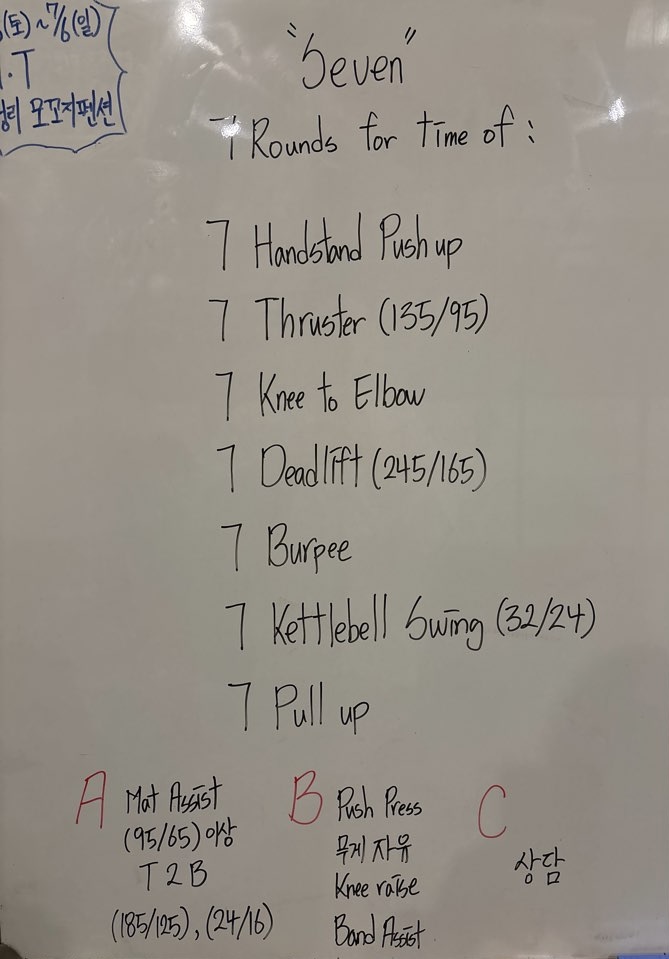 (토)~7/6(일)
.T
리 모꼬지펜션
"Seven"
7 Rounds for time of :
7 Handstand Push up
7 Thruster (135/95)
7 Knee to Elbow
7 Deadlift (245/165)
7 Burpee
7 Kettlebell Swing (32/24)
7 Pull up
A Mat Assist
(95/65) 이상
T2B
(185/125), (24/16)
B Push Press
무게 자유
Knee raise
Band Assist
C
상담